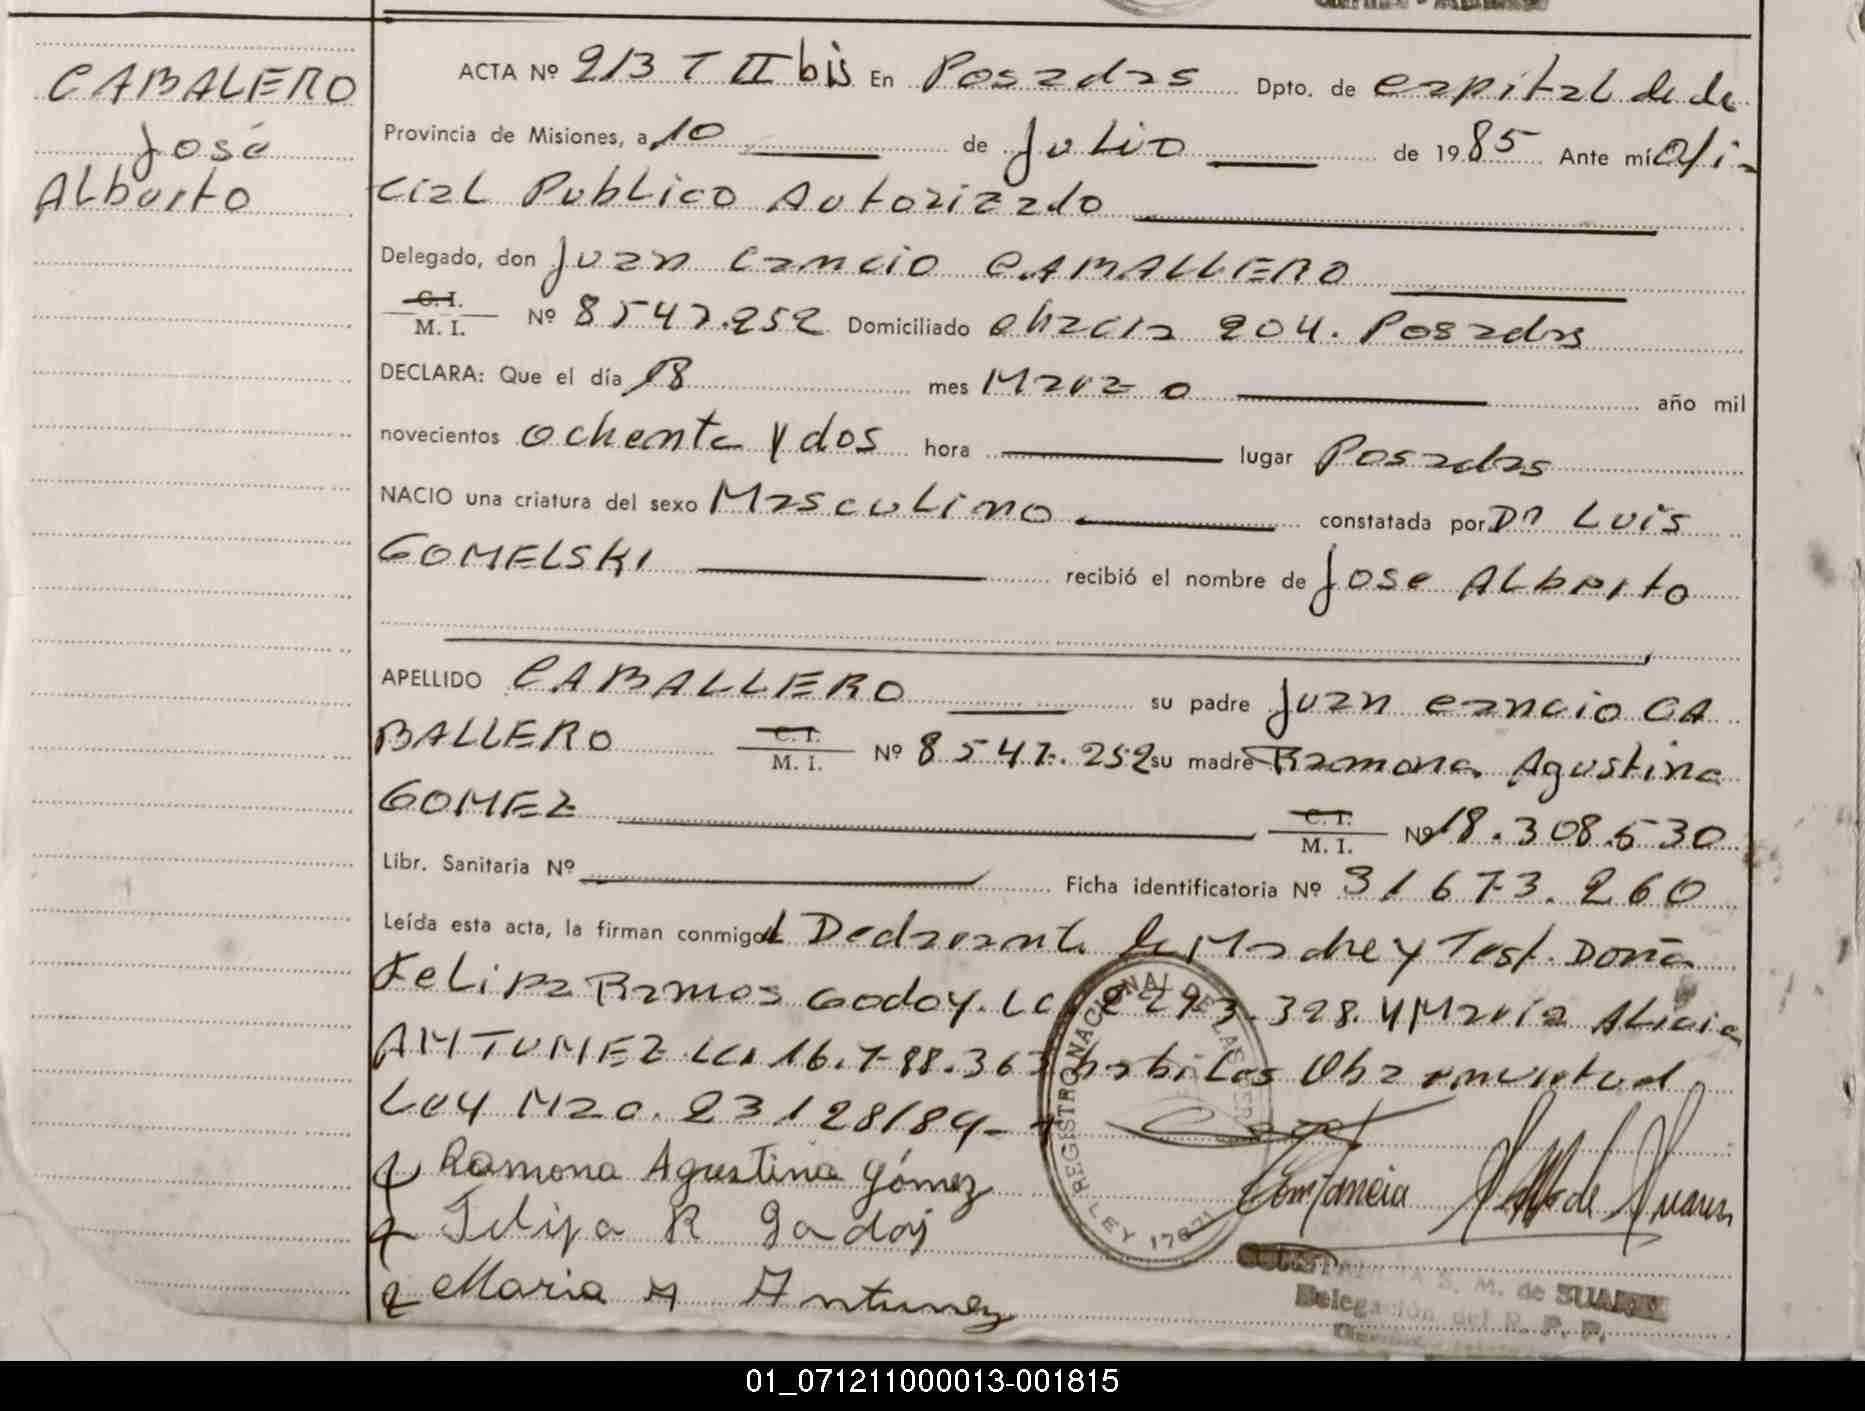 CABALERO
José
Alberto
ACTA Nº 213 T II bis En Posadas Dpto. de capital de la
Provincia de Misiones, a 10 de Julio de 1985 Ante mí Ofi-
cial Publico Autorizado
Delegado, don Juan Cancio CABALLERO
C. I.
M. I. Nº 8547.252 Domiciliado chacra 204. Posadas
DECLARA: Que el día 18 mes Marzo año mil
novecientos ochenta y dos hora lugar Posadas
NACIO una criatura del sexo Masculino constatada por Dr Luis
GOMELSKI recibió el nombre de Jose Alberto
APELLIDO CABALLERO su padre Juan Cancio CA
BALLERO C. I. M. I. Nº 8547.252 su madre Ramona Agustina
GOMEZ C. I. M. I. Nº 18.308.530
Libr. Sanitaria Nº Ficha identificatoria Nº 31673.260
Leída esta acta, la firman conmigo el Declarante la Madre y Test. Doña
Felipa Ramos Godoy. LC 293.328. y María Alicia
ANTUNEZ LC. 16.788.363 habiles Obra en virtud
Ley Nac. 23128/84-
Ramona Agustina Gómez
Felipa R Godoy
Maria A Antunez
REGISTRO NACIONAL DE LAS PER
LEY 17671
Constancia de Suarez
CONSTANCIA S. M. de SUAREZ
Delegación del R. P. P.
01_071211000013-001815